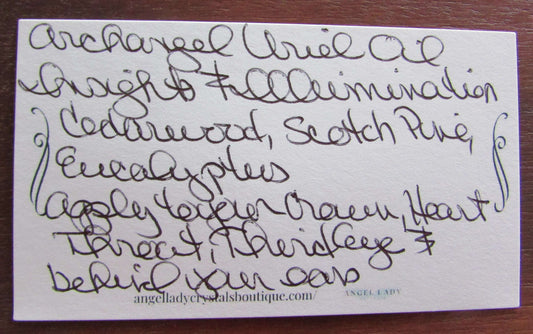 Archangel Uriel Oil
Insight & Illumination
Cedarwood, Scotch Pine,
Eucalyptus
apply to your Crown, Heart
Throat, Third Eye &
behind your ears
angelladycrystalsboutique.com/ ANGEL LADY